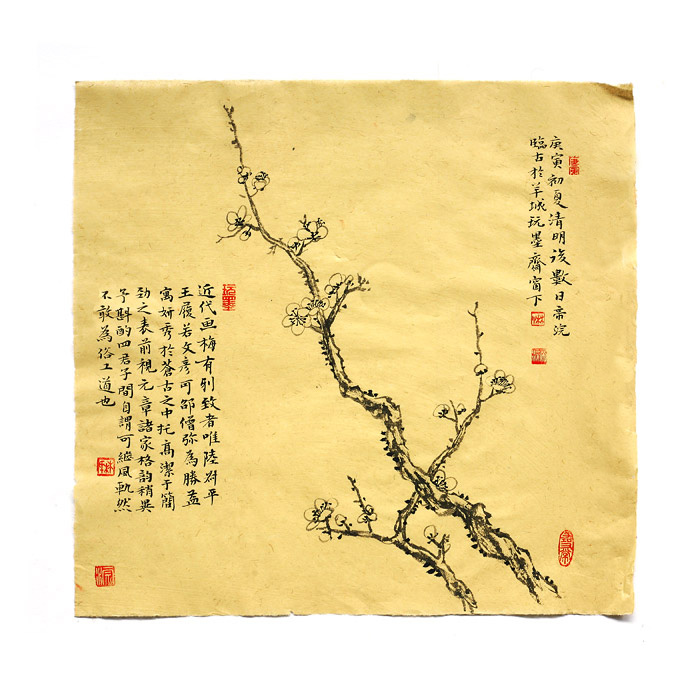 庚寅初夏清明後數日帝浣
臨古於羊城玩墨齋窗下
近代画梅有別致者唯陸尗平
王履若文彥可邵僧弥為勝盖
寓妍秀於蒼古之中托高潔于簡
勁之表前視元章諸家格韵稍異
予斟酌四君子間自謂可繼風軌然
不敢為俗工道也